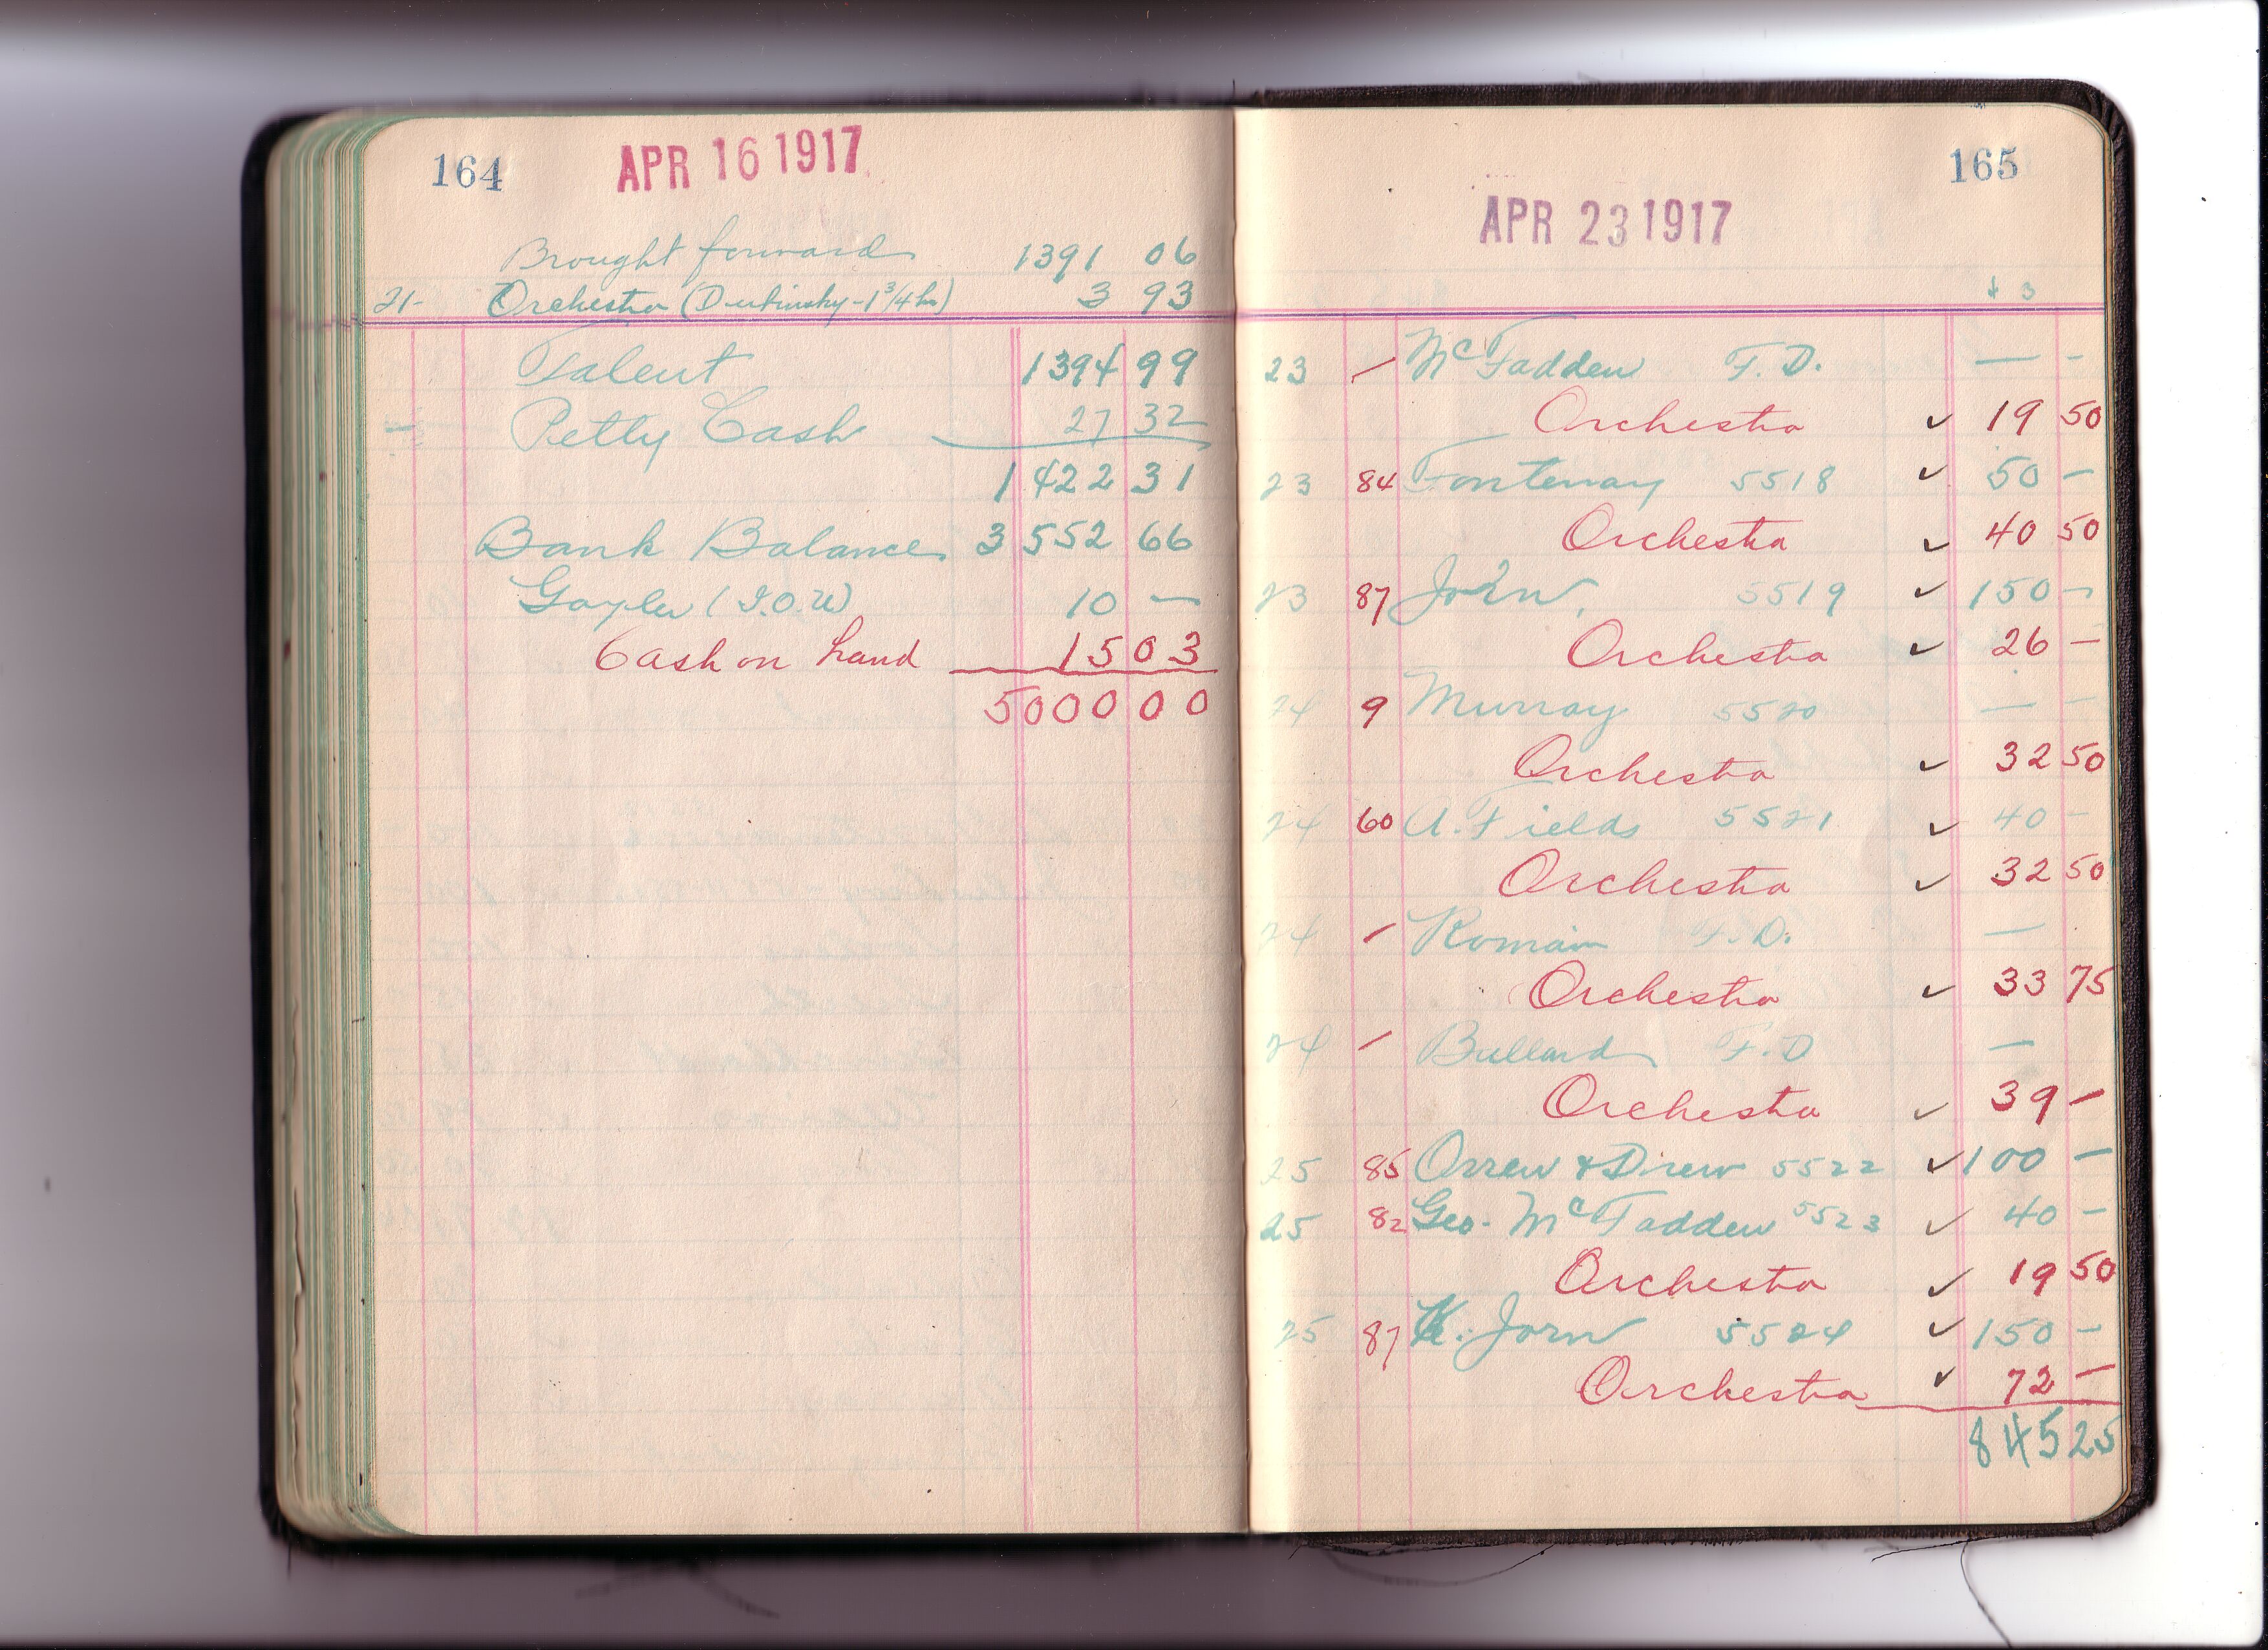 164
APR 16 1917
Brought forward 1391 06
21- Orchestra (Dubinsky-1 3/4 hr) 3 93
Talent 1394 99
Petty Cash 27 32
1422 31
Bank Balance 3552 66
Gayler (I.O.U) 10 —
Cash on hand 15 03
5000 00
165
APR 23 1917
23 / McFadden F.D. — -
Orchestra ✓ 19 50
23 84 Fontenay 5518 ✓ 50 -
Orchestra ✓ 40 50
23 87 Jorn. 5519 ✓ 150 -
Orchestra ✓ 26 —
24 9 Murray 5520 — -
Orchestra ✓ 32 50
24 60 A. Fields 5521 ✓ 40 -
Orchestra ✓ 32 50
24 / Romain F.D. —
Orchestra ✓ 33 75
24 / Ballard F.D —
Orchestra ✓ 39 -
25 85 Orren & Drew 5522 ✓ 100 -
25 82 Geo. McFadden 5523 ✓ 40 -
Orchestra ✓ 19 50
25 87 K. Jorn 5524 ✓ 150 -
Orchestra ✓ 72 —
845 25